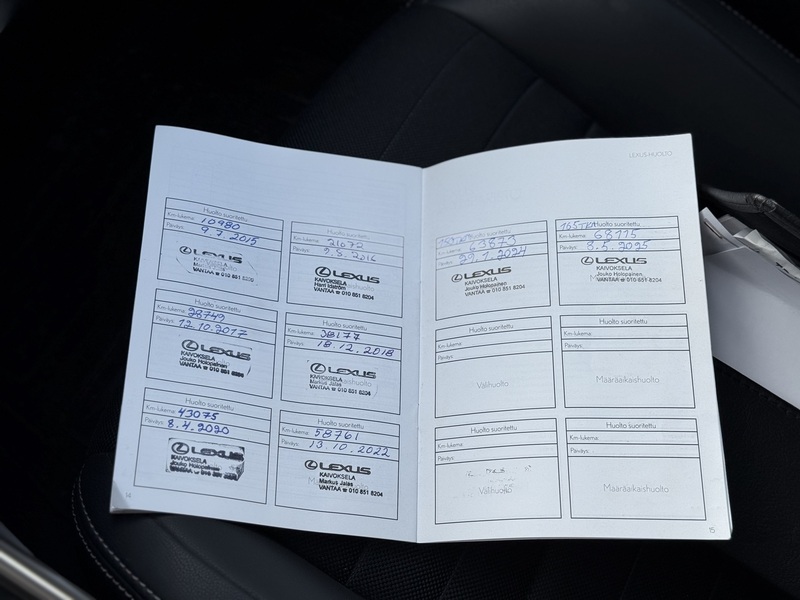 Huolto suoritettu
Km-lukema: 10980
Päiväys: 9.7.2015
LEXUS
KAIVOKSELA
VANTAA ☎ 010 851
Huolto suoritettu
Km-lukema: 21072
Päiväys: 9.8.2016
LEXUS
KAIVOKSELA
Harri Idström
VANTAA ☎ 010 851 8204
Huolto suoritettu
Km-lukema: 28749
Päiväys: 12.10.2017
LEXUS
KAIVOKSELA
Jouko Holopainen
VANTAA ☎ 010 851
Huolto suoritettu
Km-lukema: 38177
Päiväys: 18.12.2018
LEXUS
KAIVOKSELA
Markus Jalas
VANTAA ☎ 010 851 8204
Huolto suoritettu
Km-lukema: 43075
Päiväys: 8.4.2020
LEXUS
KAIVOKSELA
Jouko Holopainen
VANTAA ☎ 010 851
Huolto suoritettu
Km-lukema: 58761
Päiväys: 13.10.2022
LEXUS
KAIVOKSELA
Markus Jalas
VANTAA ☎ 010 851 8204
14
LEXUS-HUOLTO
Huolto suoritettu
Km-lukema: 63873
Päiväys: 29.1.2024
LEXUS
KAIVOKSELA
Jouko Holopainen
VANTAA ☎ 010 851 8204
165TKM
Huolto suoritettu
Km-lukema: 68115
Päiväys: 8.5.2025
LEXUS
KAIVOKSELA
Jouko Holopainen
VANTAA ☎ 010 851 8204
Huolto suoritettu
Km-lukema:
Päiväys:
Välihuolto
Huolto suoritettu
Km-lukema:
Päiväys:
Määräaikaishuolto
Huolto suoritettu
Km-lukema:
Päiväys:
Välihuolto
Huolto suoritettu
Km-lukema:
Päiväys:
Määräaikaishuolto
15